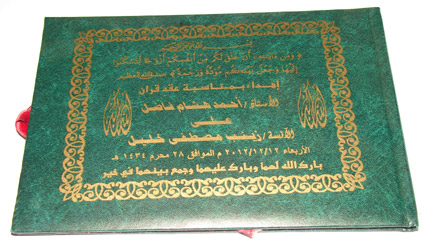 بسم الله الرحمن الرحيم
و ومن آياته أن خلق لكم من أنفسكم أزواجا لتسكنوا
إليها وجعل بينكم مودة ورحمة
إهداء بمناسبة عقد قران
الأستاذ / أحمد هشام فاضل
على
الآنسة / زينب مصطفى خليل
الأربعاء ٢٠١٢/١٢/١٢ م الموافق ٢٨ محرم ١٤٣٤ هـ
بارك الله لهما وبارك عليهما وجمع بينهما في خير